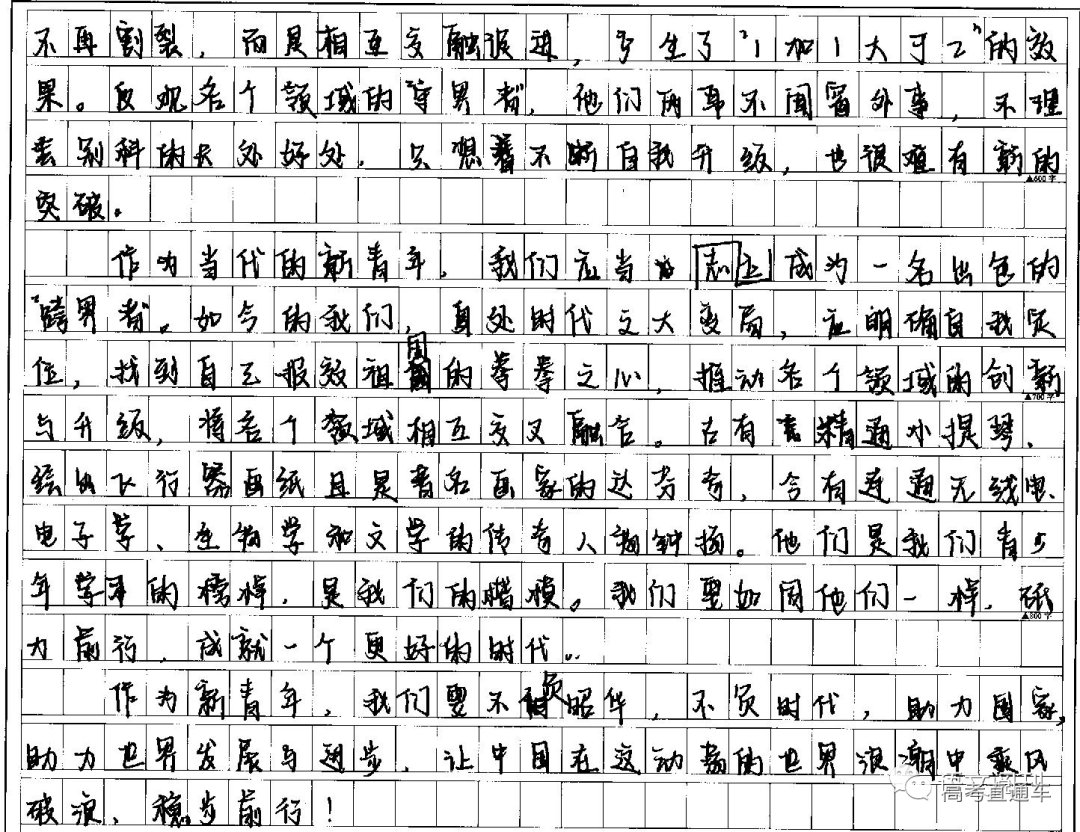 不再割裂，而是相互交融促进，产生了“1加1大于2”的效
果。反观各个领域的“守界者”，他们两耳不闻窗外事，不理
素别科的大处好处，只想着不断自我升级，也很难有新的
▲600字
突破。
作为当代的新青年，我们应当志立成为一名出色的
“跨界者”。如今的我们，身处时代之大变局，应明确自我定
位，找到自己报效祖国的拳拳之心，推动各个领域的创新
▲700字
与升级，将各个领域相互交叉融合。古有精通小提琴、
绘出飞行器画纸且是著名画家的达芬奇，今有连通无线电、
电子学、生物学和文学的传奇人物钟扬。他们是我们青少
年学习的榜样，是我们的楷模。我们要如同他们一样，砥
▲800字
力前行，成就一个更好的时代。
作为新青年，我们要不负韶华，不负时代，助力国家，
助力世界发展与进步，让中国在这动荡的世界浪潮中乘风
破浪，稳步前行！
高考直通车